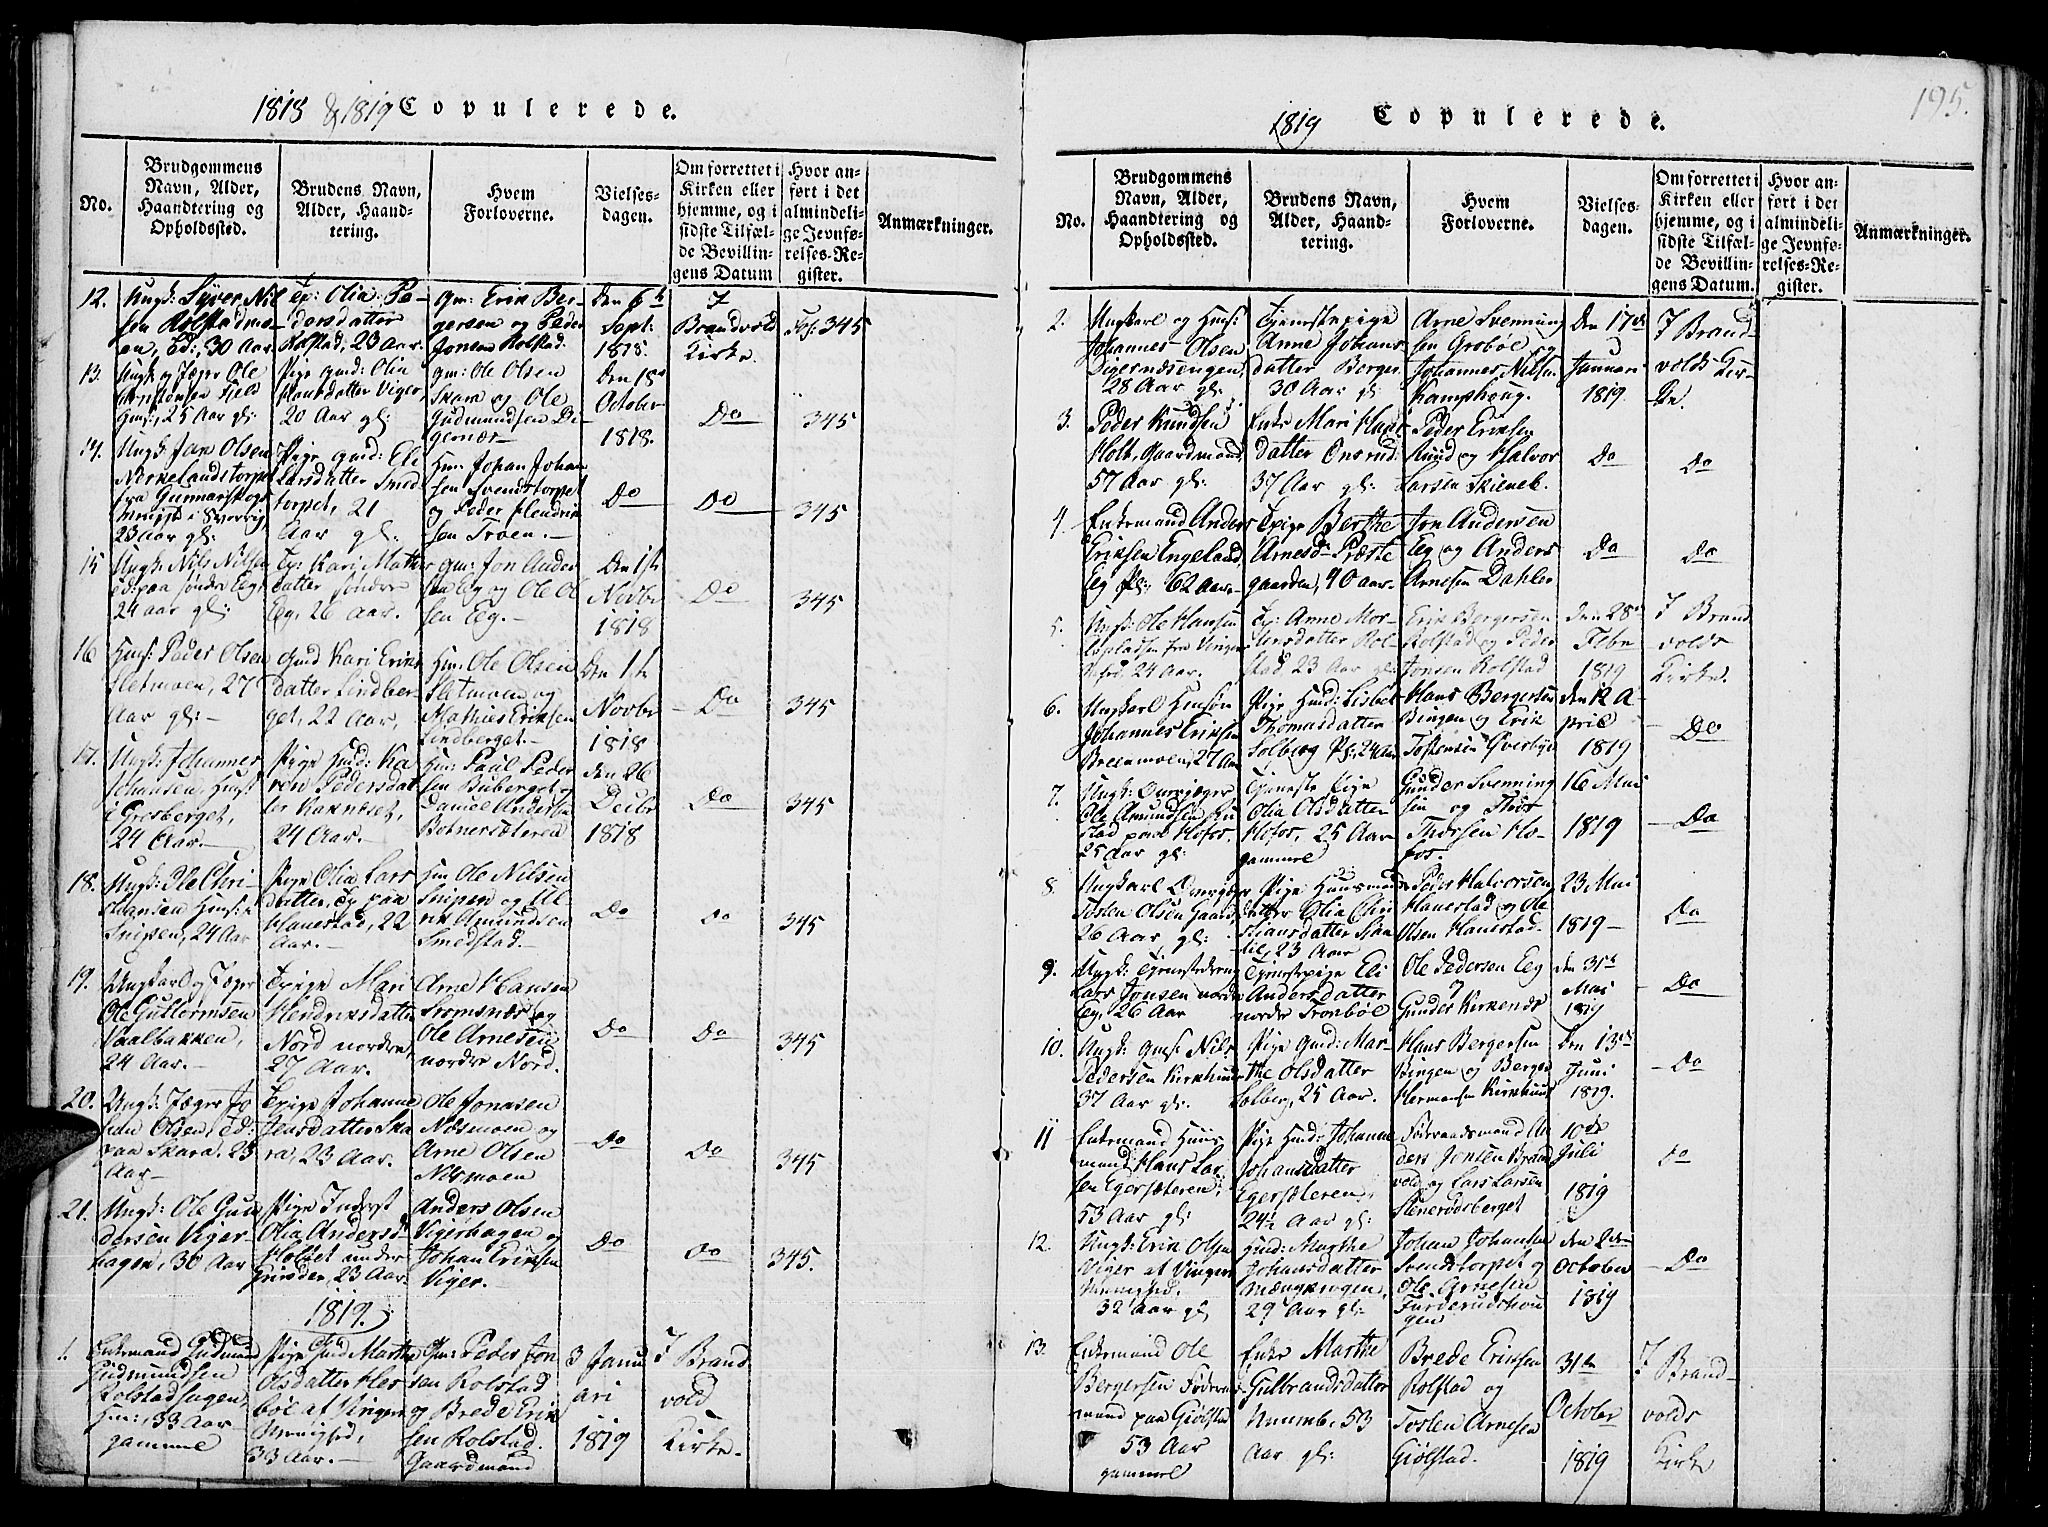 1818 & 1819 Copulerede.
No.
Brudgommens
Navn, Alder,
Haandtering og
Opholdssted.
Brudens Navn,
Alder, Haand-
tering.
Hvem
Forloverne.
Vielses-
dagen.
Om forrettet i
Kirken eller
hjemme, og i
sidste Tilfæl-
de Bevillin-
gens Datum
Hvor an-
ført i det
almindeli-
ge Jevnfø-
relses-Re-
gister.
Anmærkninger.
12.
Ungk: Syver Nil
sen Rolstadmo-
en, Ed:, 30 Aar.
Tp: Olia Pe-
dersdatter
Rolstad, 23 Aar.
Gm: Erik Ber-
gersen og Peder
Jonsen Rolstad.
Den 6te
Sept:
1818.
I
Brandvold
Kirke.
Fol: 345
13.
Ungk og Jæger Ole
25 Aar gl:
Pige Gmd: Olia
Hansdatter Viger,
20 Aar gl:
Gm: Ole Olsen
Skara og Ole
Gudmundsen Di-
gernæs
Den 18de
October
1818.
Do
345
14.
Ungk: Jan Olsen
Nerkelandstorpet
fra Gunnarskogs
Menighed i Sverrig,
23 Aar gl:
Pige Gmd: Eli
Larsdatter Smed
torpet, 21
Aar gl:
Hm: Johan Johan
sen Svendstorpet
og Peder Hendrik
sen Troen.
Do
Do
345
15
Ungk: Nils Nilsen
Ed: paa søndre Eeg,
24 aar gl:
Tp: Kari Mathis
datter søndre
Eeg, 26 Aar.
Gm: Jon Ander
sen Eeg og Ole Ol
sen Eeg.
Den 1ste
Novbr
1818
Do
345
16
Hms: Peder Olsen
Sletmoen, 27
Aar gl:
Gmd Kari Eriks
datter Lindber-
get, 22 Aar,
Hm: Ole Olsen
Sletmoen og
Mathies Eriksen
Lindberget.
Den 1ste
Novbr
1818
Do
345
17.
Ungk: Johannes
Johansen, Hmst
i Gresberget,
24 Aar.
Pige Hmd: Ka
ren Pedersdat
ter Kaknæset,
24 Aar.
Hm: Paul Peder
sen Buberget og
Daniel Andersen
Botnersæteren
den 26
Decbr
1818
Do
345
18.
Ungk: Ole Chri
stiansen Hms: i
Snipen, 24 Aar
Pige Olia Lars
datter, Tp paa
Hanestad, 22
Aar.
Hm Ole Nilsen
Snipen og Ul
rik Amundsen
Smedstad.
Do
Do
345
19.
Ungkarl og Jæger
Ole Guttormsen
Vaalbakken,
24 Aar.
Tpige Mari
Hendriksdatter
Nord nordre,
27 Aar.
Arne Hansen
Stomsnæs og
Ole Arnesen
nordre Nord.
Do
Do
345
20.
Ungk: Jæger Jo
han Olsen, Ed:
paa Skara, 25
Aar
Tpige Johanne
Jensdatter Ska
ra, 23 Aar.
Ole Jonasen
Næsmoen og
Arne Olsen
Næsmoen
Do
Do
345
21.
Ungk: Ole Gun
dersen Viger-
hagen, 30 Aar
Pige Inderst
Olia Andersd:
Holset under
Grinder, 23 Aar.
Anders Olsen
Vigerhagen og
Johan Eriksen
Viger.
Do
Do
345.
1819.
1.
Enkemand Gudmund
Gudmundsen
Rolstadhagen,
Hm:, 33 Aar
gammel
Pige Gmd Marthe
Olsdatter Hes
bøl af Vinger
Menighed,
33 Aar.
Gm: Peder Jon
sen Rolstad
og Brede Erik
sen Rolstad.
Gaardmænd
3 Janu
ari
1819
I Brand
vold
Kirke.
1819
Copulerede.
195.
No.
Brudgommens
Navn, Alder,
Haandtering og
Opholdssted.
Brudens Navn,
Alder, Haand-
tering.
Hvem
Forloverne.
Vielses-
dagen.
Om forrettet i
Kirken eller
hjemme, og i
sidste Tilfæl-
de Bevillin-
gens Datum.
Hvor an-
ført i det
almindeli-
ge Jevnfø-
relses-Re-
gister.
Anmærkninger.
2.
Ungkarl og Hms:
Johannes Olsen
Digernæsengen,
28 Aar gl:
Tjenestepige
Anne Johans
datter Berger
30 Aar gl:
Arne Svenning
sen Grobøl og
Johannes Nilsen
Kamphoug.
Den 17de
Januari
1819.
I Brand
volds Kir-
ke.
3.
Peder Knudsen
Holt, Gaardmand,
57 Aar gl:
Enke Mari Hans
datter Onsrud
37 Aar gl:
Peder Eriksen
Rund og Halvor
Larsen Skieneb.
Do
Do
4.
Enkemand Anders
Eriksen Engeland
Eeg Pl: 62 Aar
Tpige Berthe
Arnesd: Præste
gaarden, 40 aar.
Jon Andersen
Eeg og Anders
Arnesen Dahler
Do
Do
5.
Ungk: Ole Hansen
fra Vinger
24 Aar.
Tp: Anne Mor-
tensdatter Rol-
stad 23 Aar gl:
Erik Bergersen
Rolstad og Peder
Jonsen Rolstad
den 28de
Febr
1819
I Brand
volds
Kirke.
6.
Ungkarl Hmsøn
Johannes Eriksen
Breenmoen, 27 Aar
Pige Hmd: Lisbet
Thomasdatter
Solberg Pl: 24 Aar
Hans Bergersen
Bingen og Erik
Tostensen Øverbye
den 12 A
pril
1819
Do
7.
Ungk: Ole Amundsen Ru
stad paa Hofos,
25 Aar gl:
Tjeneste Pige
Olia Olsdatter
Hofos, 25 Aar
gammel
Gunder Svenning
sen og Thor
Thorsen Ho-
fos.
16 Mai
1819
Do
8
Ungkarl
Tosten Olsen Gaard,
26 Aar gl:
Pige Huusmands
datter Olia Chri
stiansdatter
23 Aar
Peder Halvorsen
Hanestad og Ole
Olsen Hanestad
23 Mai
1819
Do
9.
Ungk: Tjenestedreng
Lars Jonsen nordre
Eeg, 26 Aar
Tjenestepige Eli
Andersdatter
nordre Tronbøl
Ole Pedersen Eeg
og
Gunder Kirkenær
den 31te
Mai
1819
Do
10.
Ungk: Gms: Nils
Pedersen Kirkhuus
37 Aar gl:
Pige Gmd: Mar-
the Olsdatter
Solberg, 25 Aar.
Hans Bergersen
Bingen og Berger
Hermansen Kirkhuus
Den 13de
Juni
1819.
Do
11
Enkemand Huus
mand Hans Lar
sen Egersæteren,
53 Aar gl:
Pige Hmd: Johanne
Johansdatter
Egersæteren,
24½ Aar gl:
Føderaadsmand An
ders Jonsen Brand
vold og Lars Larsen
Stenerødsberget
10de
Juli
1819
Do
12.
Ungk: Erik Olsen
Viger af Vinger
Menighed,
32 Aar gl
Hmd: Marthe
Johansdatter
Mængkrogen,
29 Aar gl:
Johan Johansen
Svendstorpet og
Ole Arnesen
Furderudskou
gen
den 2den
October
1819
Do
13.
Enkemand Ole
Bergersen Føderaads
mand paa Giølstad
53 Aar
gammel
Enke Marthe
Gulbrandsdatter
Nuumb, 53
Aar gl:
Brede Eriksen
Rolstad og
Tosten Arnesen
Giølstad.
31te
October
1819
I Brand-
volds
Kirke